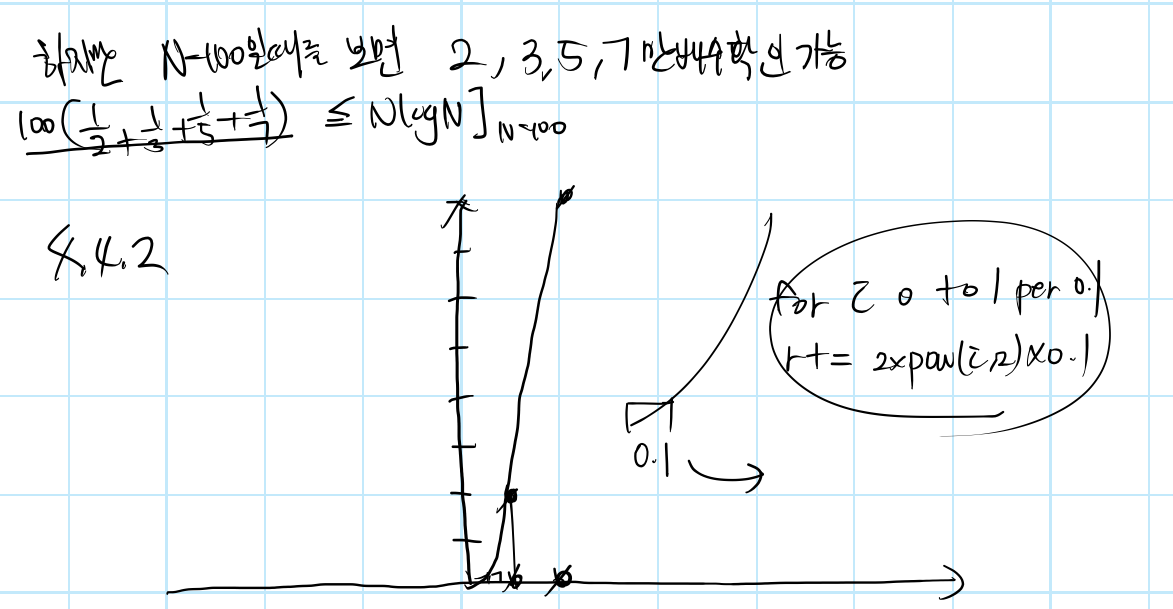 하지만 N=100일때를 보면 2, 3, 5, 7만 배수확인 가능
100(1/2+1/3+1/5+1/7) ≤ NlogN]N=100
4.4.2
for i 0 to 1 per 0.1
r+= 2xpow(i,2)x0.1
0.1